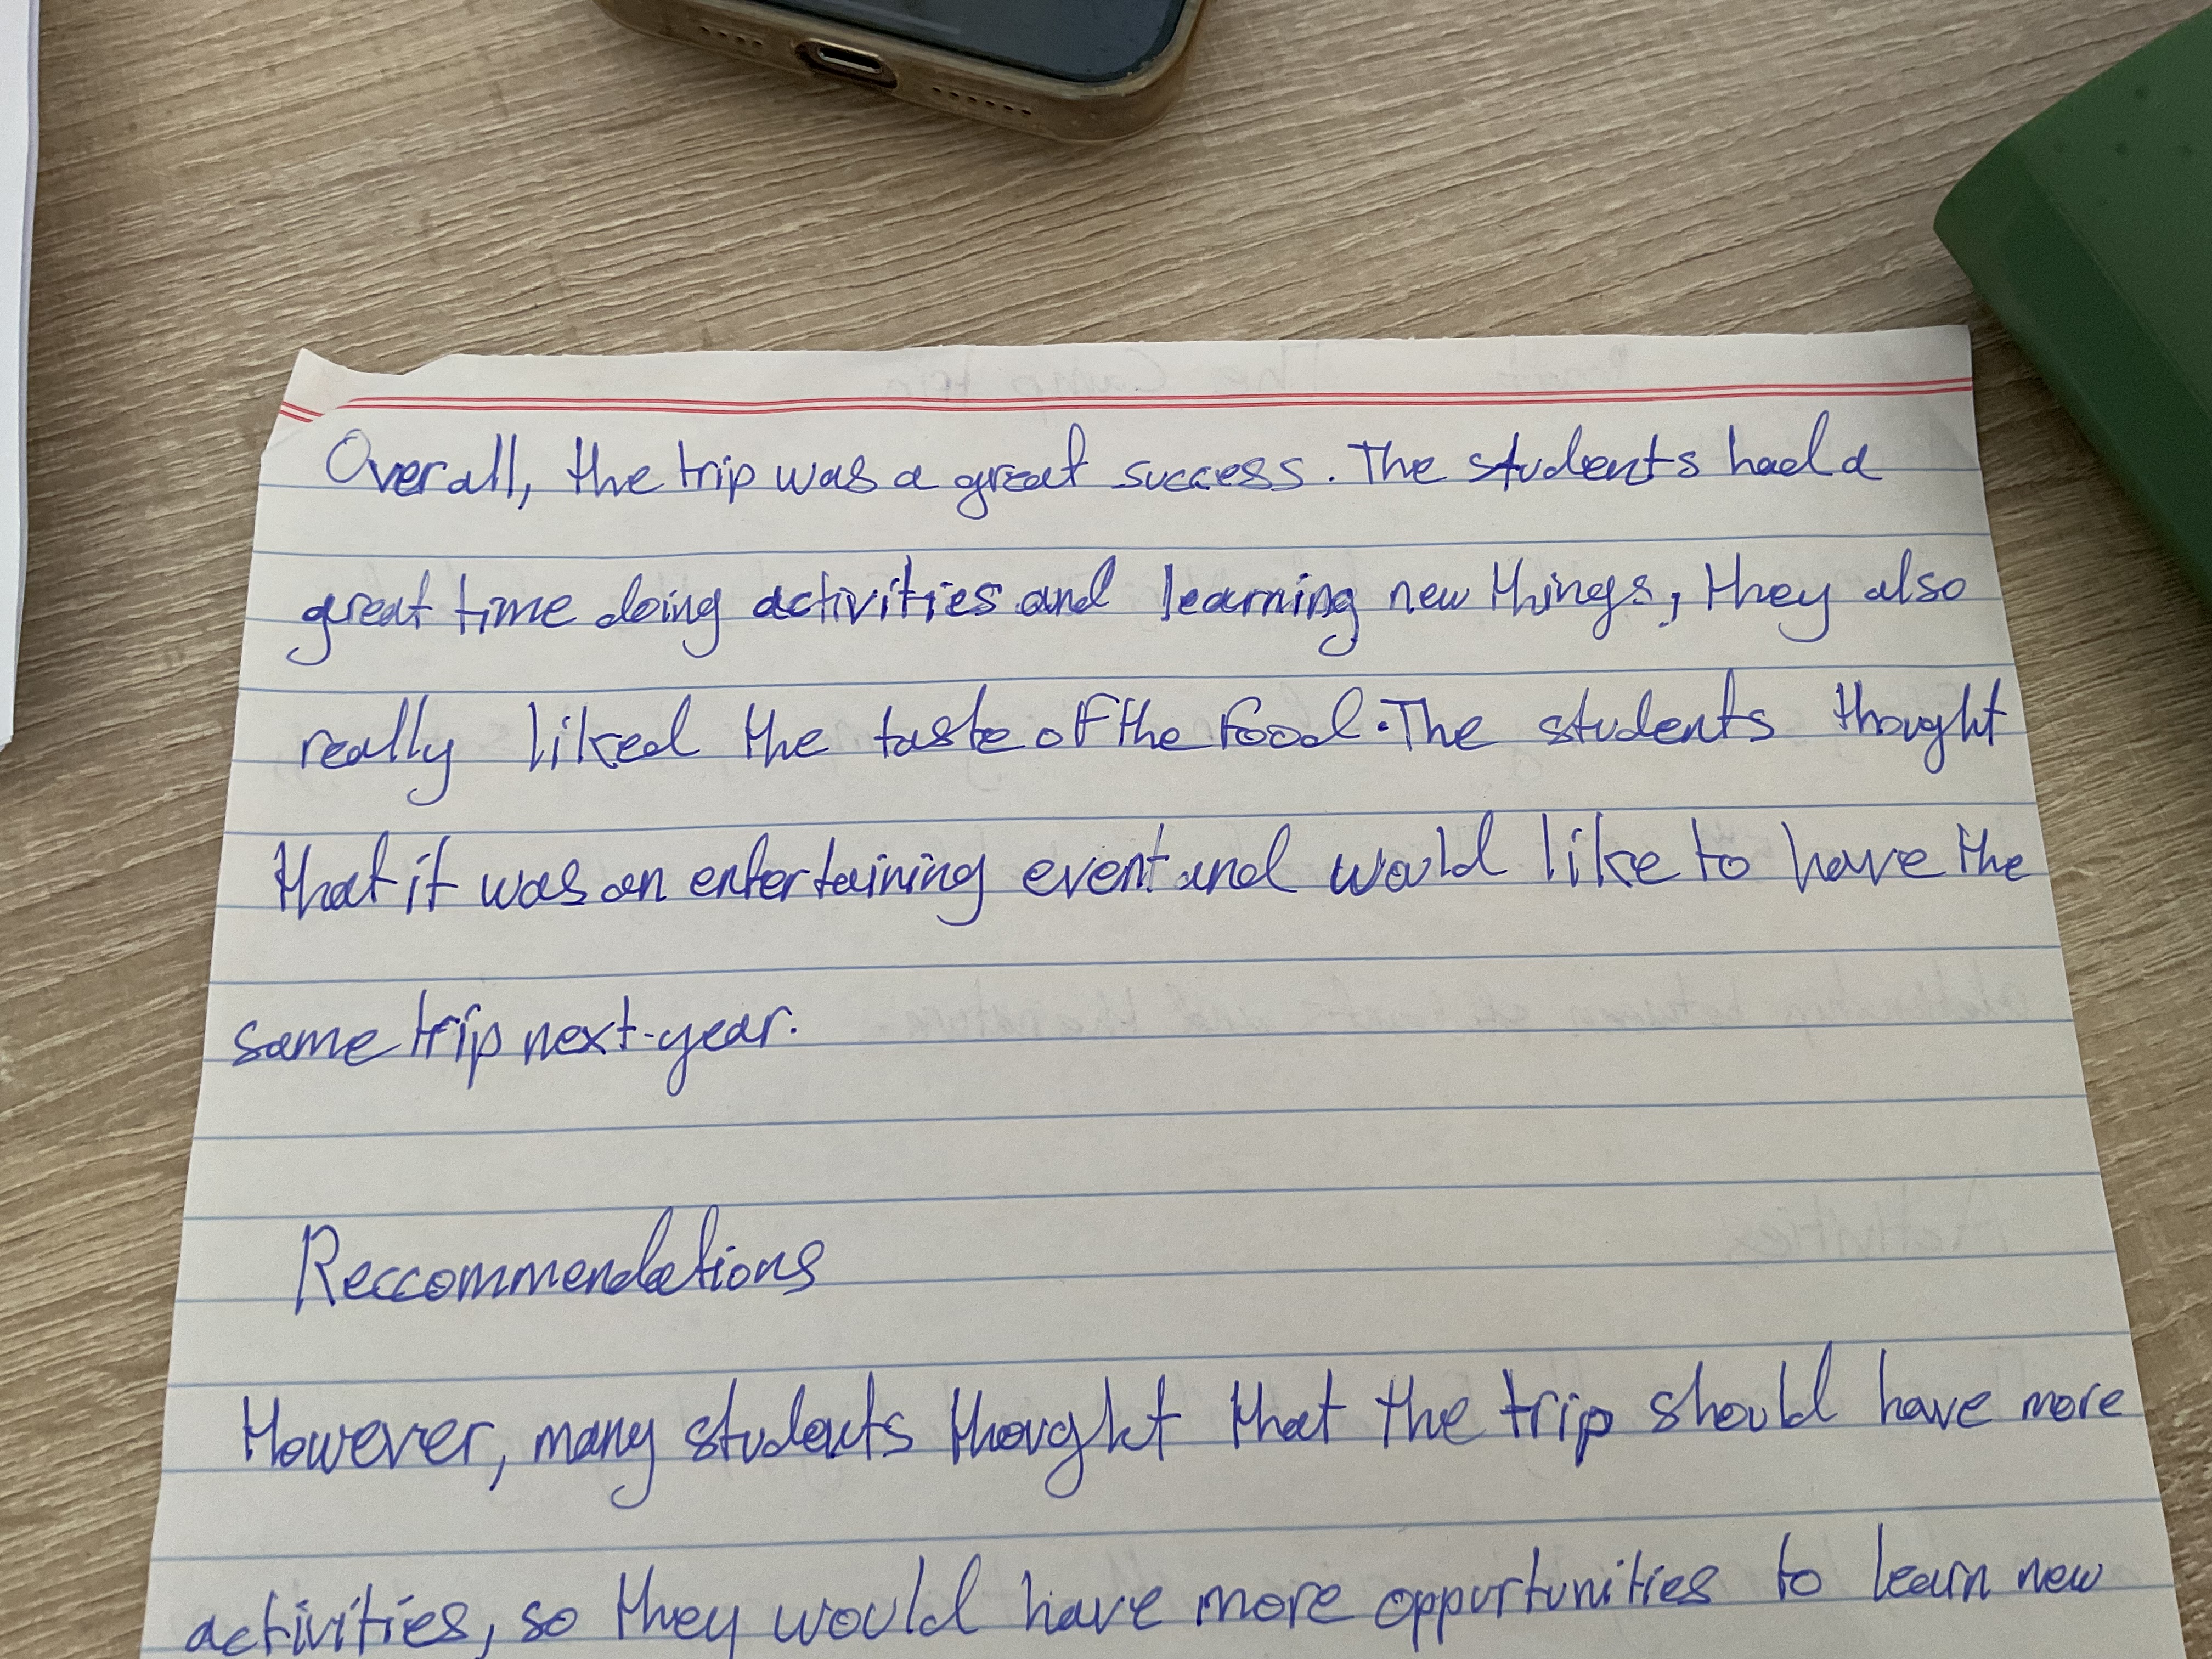 Overall, the trip was a great success. The students had a
great time doing activities and learning new things, they also
really liked the taste of the food. The students thought
that it was an entertaining event and would like to have the
same trip next year.
Reccommendations
However, many students thought that the trip should have more
activities, so they would have more opportunities to learn new